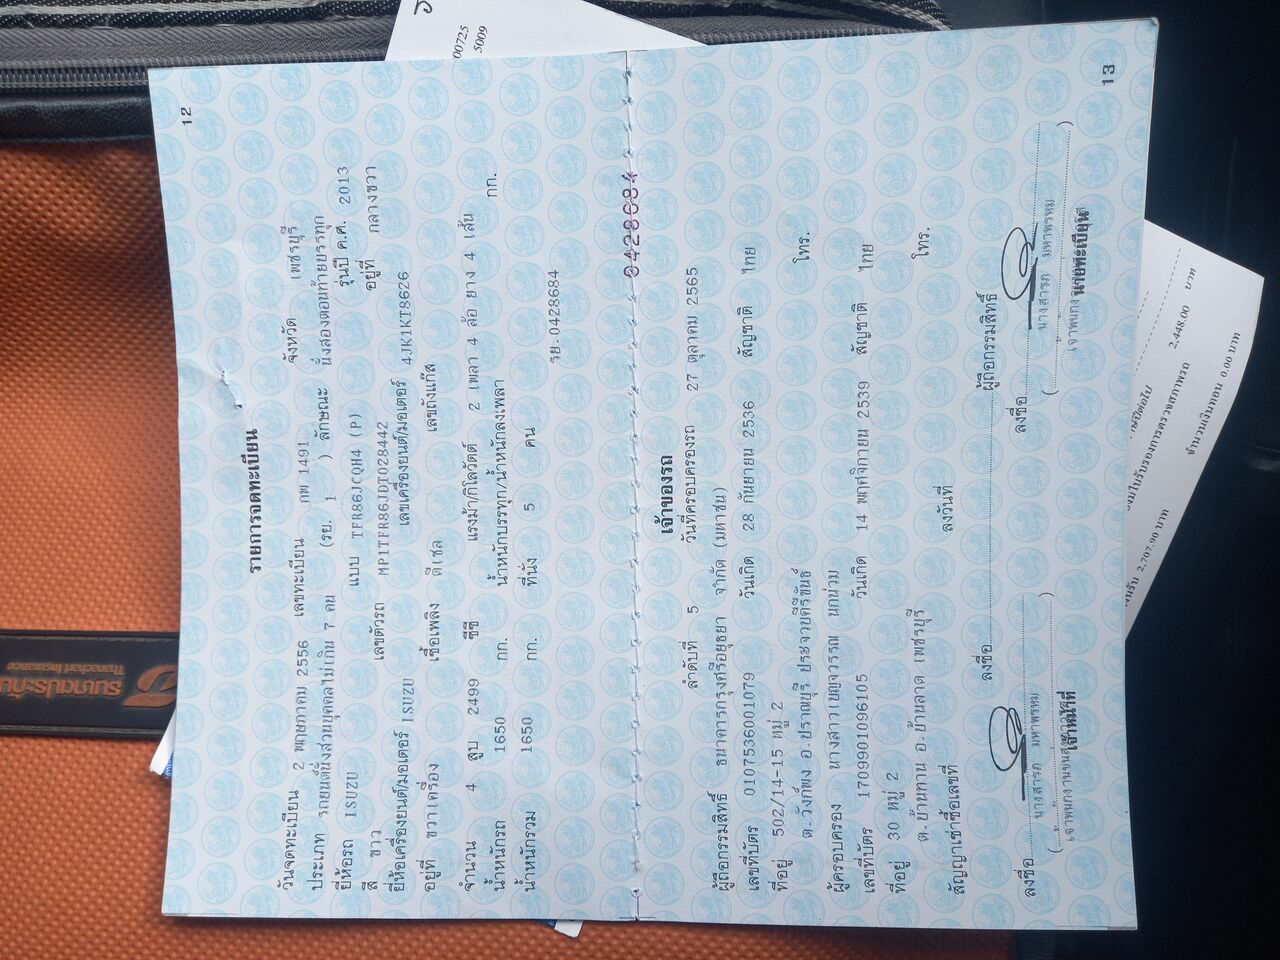 12
รายการจดทะเบียน
วันจดทะเบียน 2 พฤษภาคม 2556 เลขทะเบียน กพ 1491 จังหวัด เพชรบุรี
ประเภท รถยนต์นั่งส่วนบุคคลไม่เกิน 7 คน (รย. 1 ) ลักษณะ นั่งสองตอนท้ายบรรทุก
ยี่ห้อรถ ISUZU แบบ TFR86JCQH4 (P) รุ่นปี ค.ศ. 2013
สี ขาว เลขตัวรถ MP1TFR86JDT028442 อยู่ที่ กลางขวา
ยี่ห้อเครื่องยนต์/มอเตอร์ ISUZU เลขเครื่องยนต์/มอเตอร์ 4JK1KT8626
อยู่ที่ ขวาเครื่อง เชื้อเพลิง ดีเซล เลขถังแก๊ส
จำนวน 4 สูบ 2499 ซีซี แรงม้า/กิโลวัตต์ 2 เพลา 4 ล้อ ยาง 4 เส้น
น้ำหนักรถ 1650 กก. น้ำหนักบรรทุก/น้ำหนักลงเพลา กก.
น้ำหนักรวม 1650 กก. ที่นั่ง 5 คน
รย.0428684
0428684
เจ้าของรถ
ลำดับที่ 5 วันที่ครอบครองรถ 27 ตุลาคม 2565
ผู้ถือกรรมสิทธิ์ ธนาคารกรุงศรีอยุธยา จำกัด (มหาชน)
เลขที่บัตร 0107536001079 วันเกิด 28 กันยายน 2536 สัญชาติ ไทย
ที่อยู่ 502/14-15 หมู่ 2
ต.วังก์พง อ.ปราณบุรี ประจวบคีรีขันธ์ โทร.
ผู้ครอบครอง นางสาวเบญจวรรณ นกน่วม
เลขที่บัตร 1709901096105 วันเกิด 14 พฤศจิกายน 2539 สัญชาติ ไทย
ที่อยู่ 30 หมู่ 2
ต.บ้านทาน อ.บ้านลาด เพชรบุรี โทร.
สัญญาเช่าซื้อเลขที่ ลงวันที่
ลงชื่อ ผู้ถือกรรมสิทธิ์
ลงชื่อ
(นางสารภี มหาพรหม)
เจ้าหน้าที่
ลงชื่อ
(นางสารภี มหาพรหม)
นายทะเบียน
13
00725
5009
รมใบรับรองการตรวจสภาพรถ 2,448.00 บาท
2,707.90 บาท จำนวนเงินทอน 0.00 บาท
ธนชาตประกันภัย
Thanachart Insurance